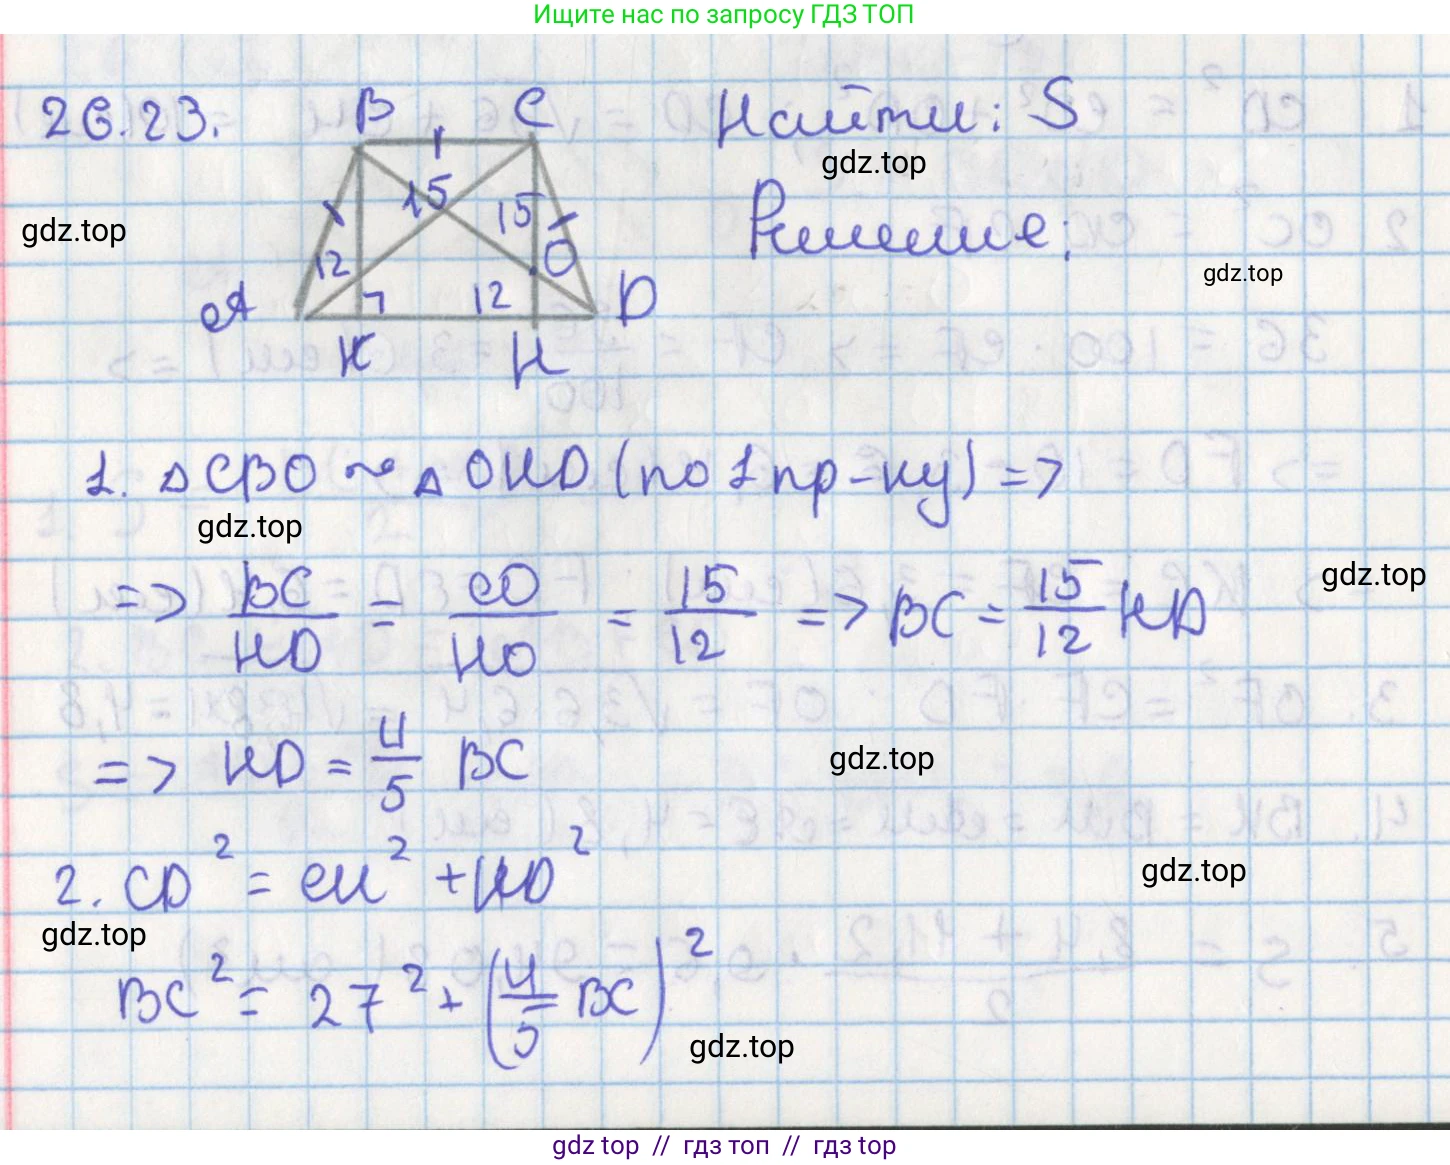 Ищите нас по запросу ГДЗ ТОП
26.23.
B C
Найти: S
gdz.top
gdz.top
15 15
Решение:
12 O
gdz.top
A 12 D
K H
1. △CBO ~ △OHD (по 1 пр-ку) =>
gdz.top
=> BC/HD = CO/HO = 15/12 => BC = 15/12 HD
gdz.top
=> HD = 4/5 BC
gdz.top
2. CD² = CH² + HD²
gdz.top
gdz.top
BC² = 27² + (4/5 BC)²
gdz.top
gdz top // гдз топ // гдз top